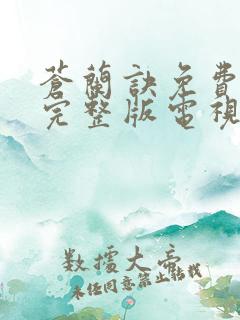 蒼蘭訣免費
完整版電視
數據大帝
未經同意禁止轉載